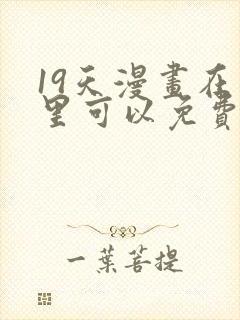 19天漫畫在
里可以免費
一葉菩提